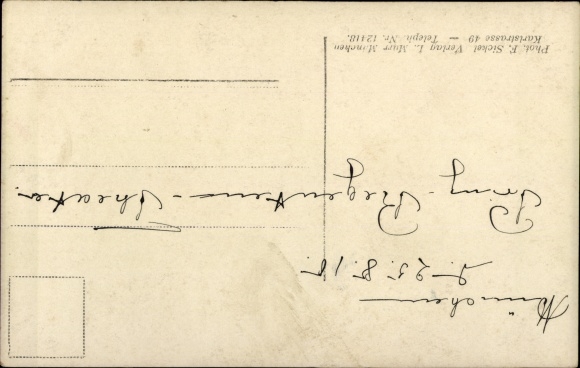 München
d. 25. 8. 15.
Prinz-
Regenten-Theater.
Phot. F. Sickel Verlag L. Murr München
Karlstrasse 49 — Teleph. Nr. 12418.